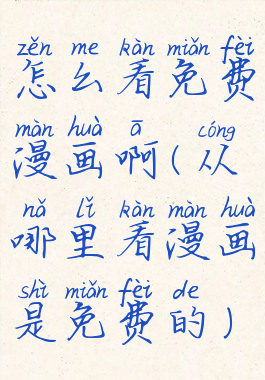 zěn me kàn miǎn fèi
怎么看免费
màn huà ā cóng
漫画啊(从
nǎ lǐ kàn màn huà
哪里看漫画
shì miǎn fèi de
是免费的)